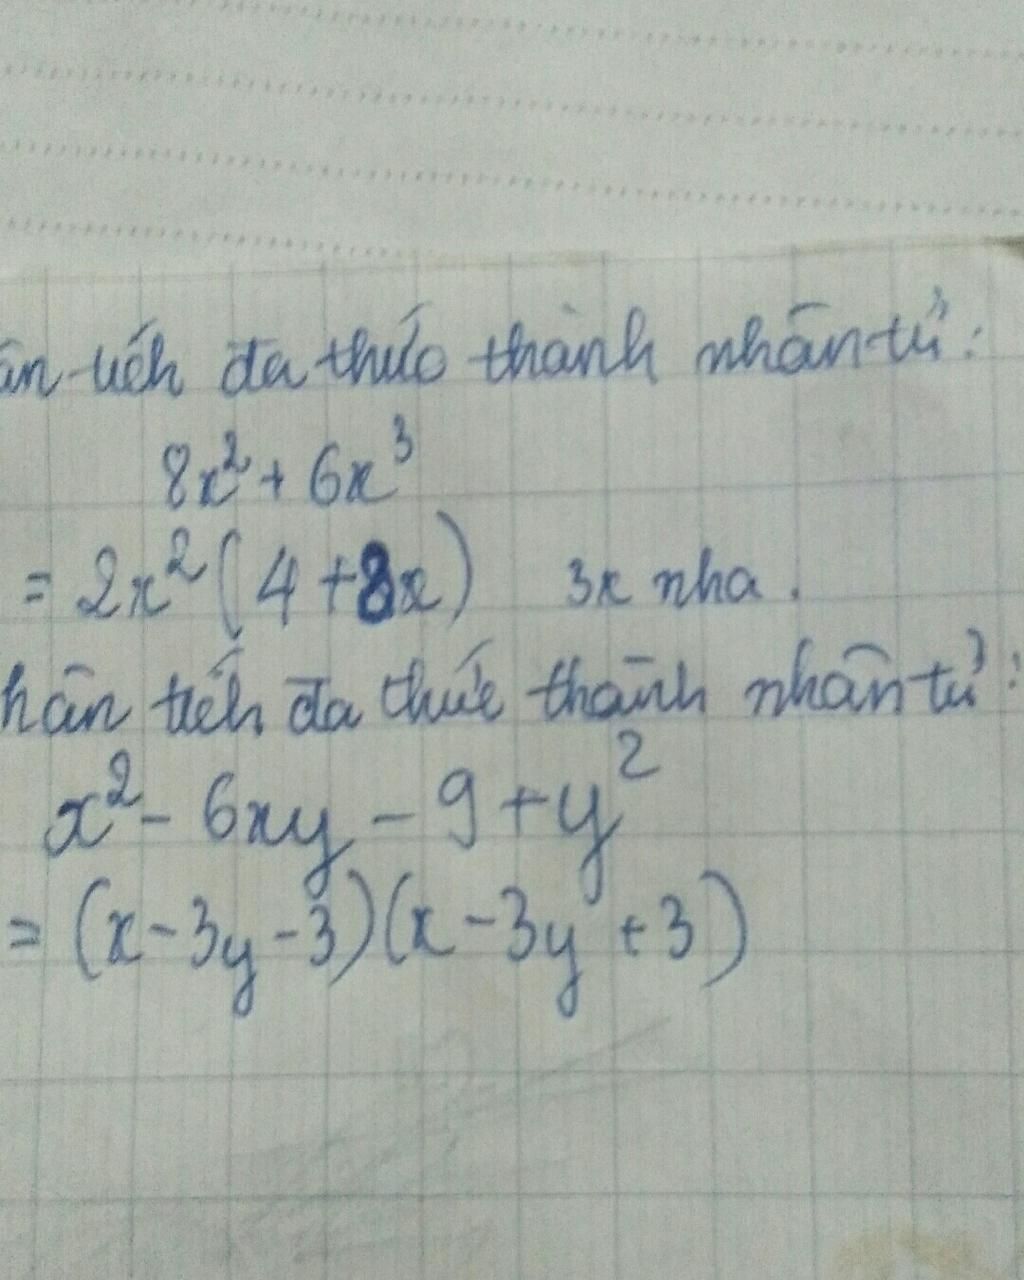 ân tích đa thức thành nhân tử:
8x² + 6x³
= 2x² (4 + 8x) 3x nha.
hân tích đa thức thành nhân tử:
x² - 6xy - 9 + y²
= (x - 3y - 3)(x - 3y + 3)